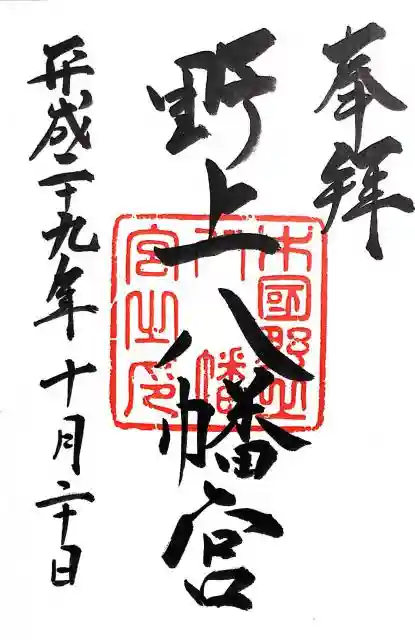 奉拝
野上八幡宮
平成二十九年十月二十日
木國野上
八幡
宮之印